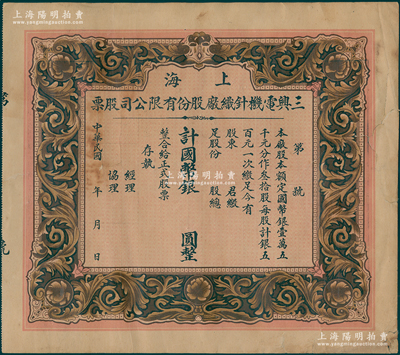 上海陽明拍賣
www.yangmingauction.com
海上
三興電機針織廠股份有限公司股票
第 號
本廠股本額定國幣銀壹萬五
千元分作叁拾股每股計銀五
百元一次繳足今有
股東 君繳
足股份 股總
計國幣銀 圓整
掣合給正式股票
存執
經理
協理
中華民國 年 月 日
上海陽明拍賣
www.yangmingauction.com